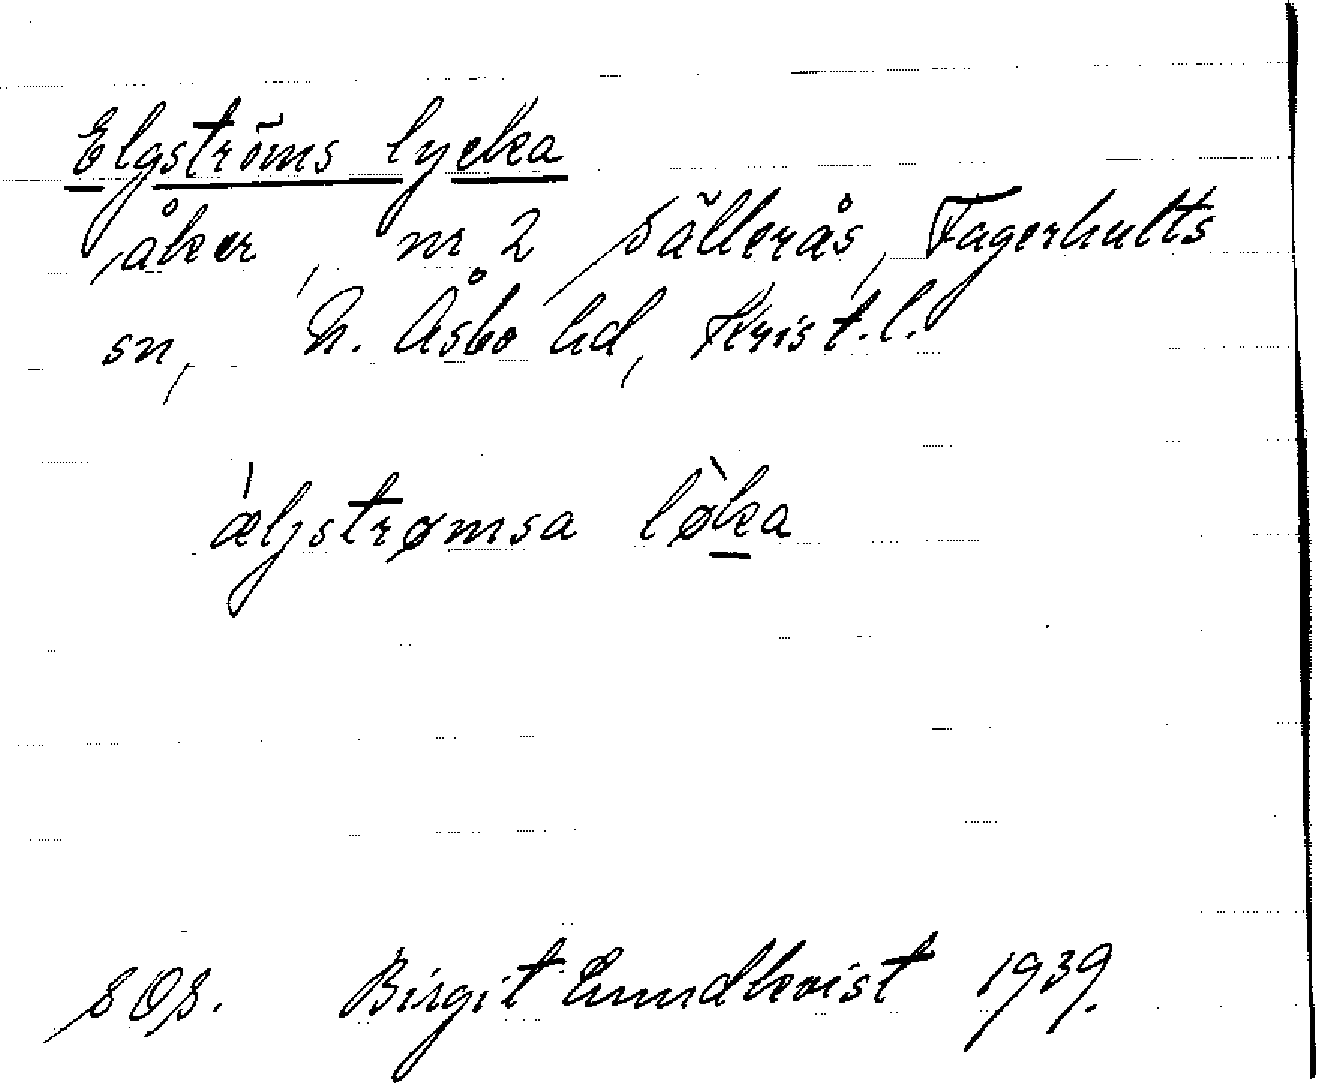 Elgströms lycka
åker, nr 2 Sällerås, Fagerhults
sn, N. Åsbo hd, Krist. l.
ˈæljstrømsa lø̀ka
SOS. Birgit Lundkvist 1939.